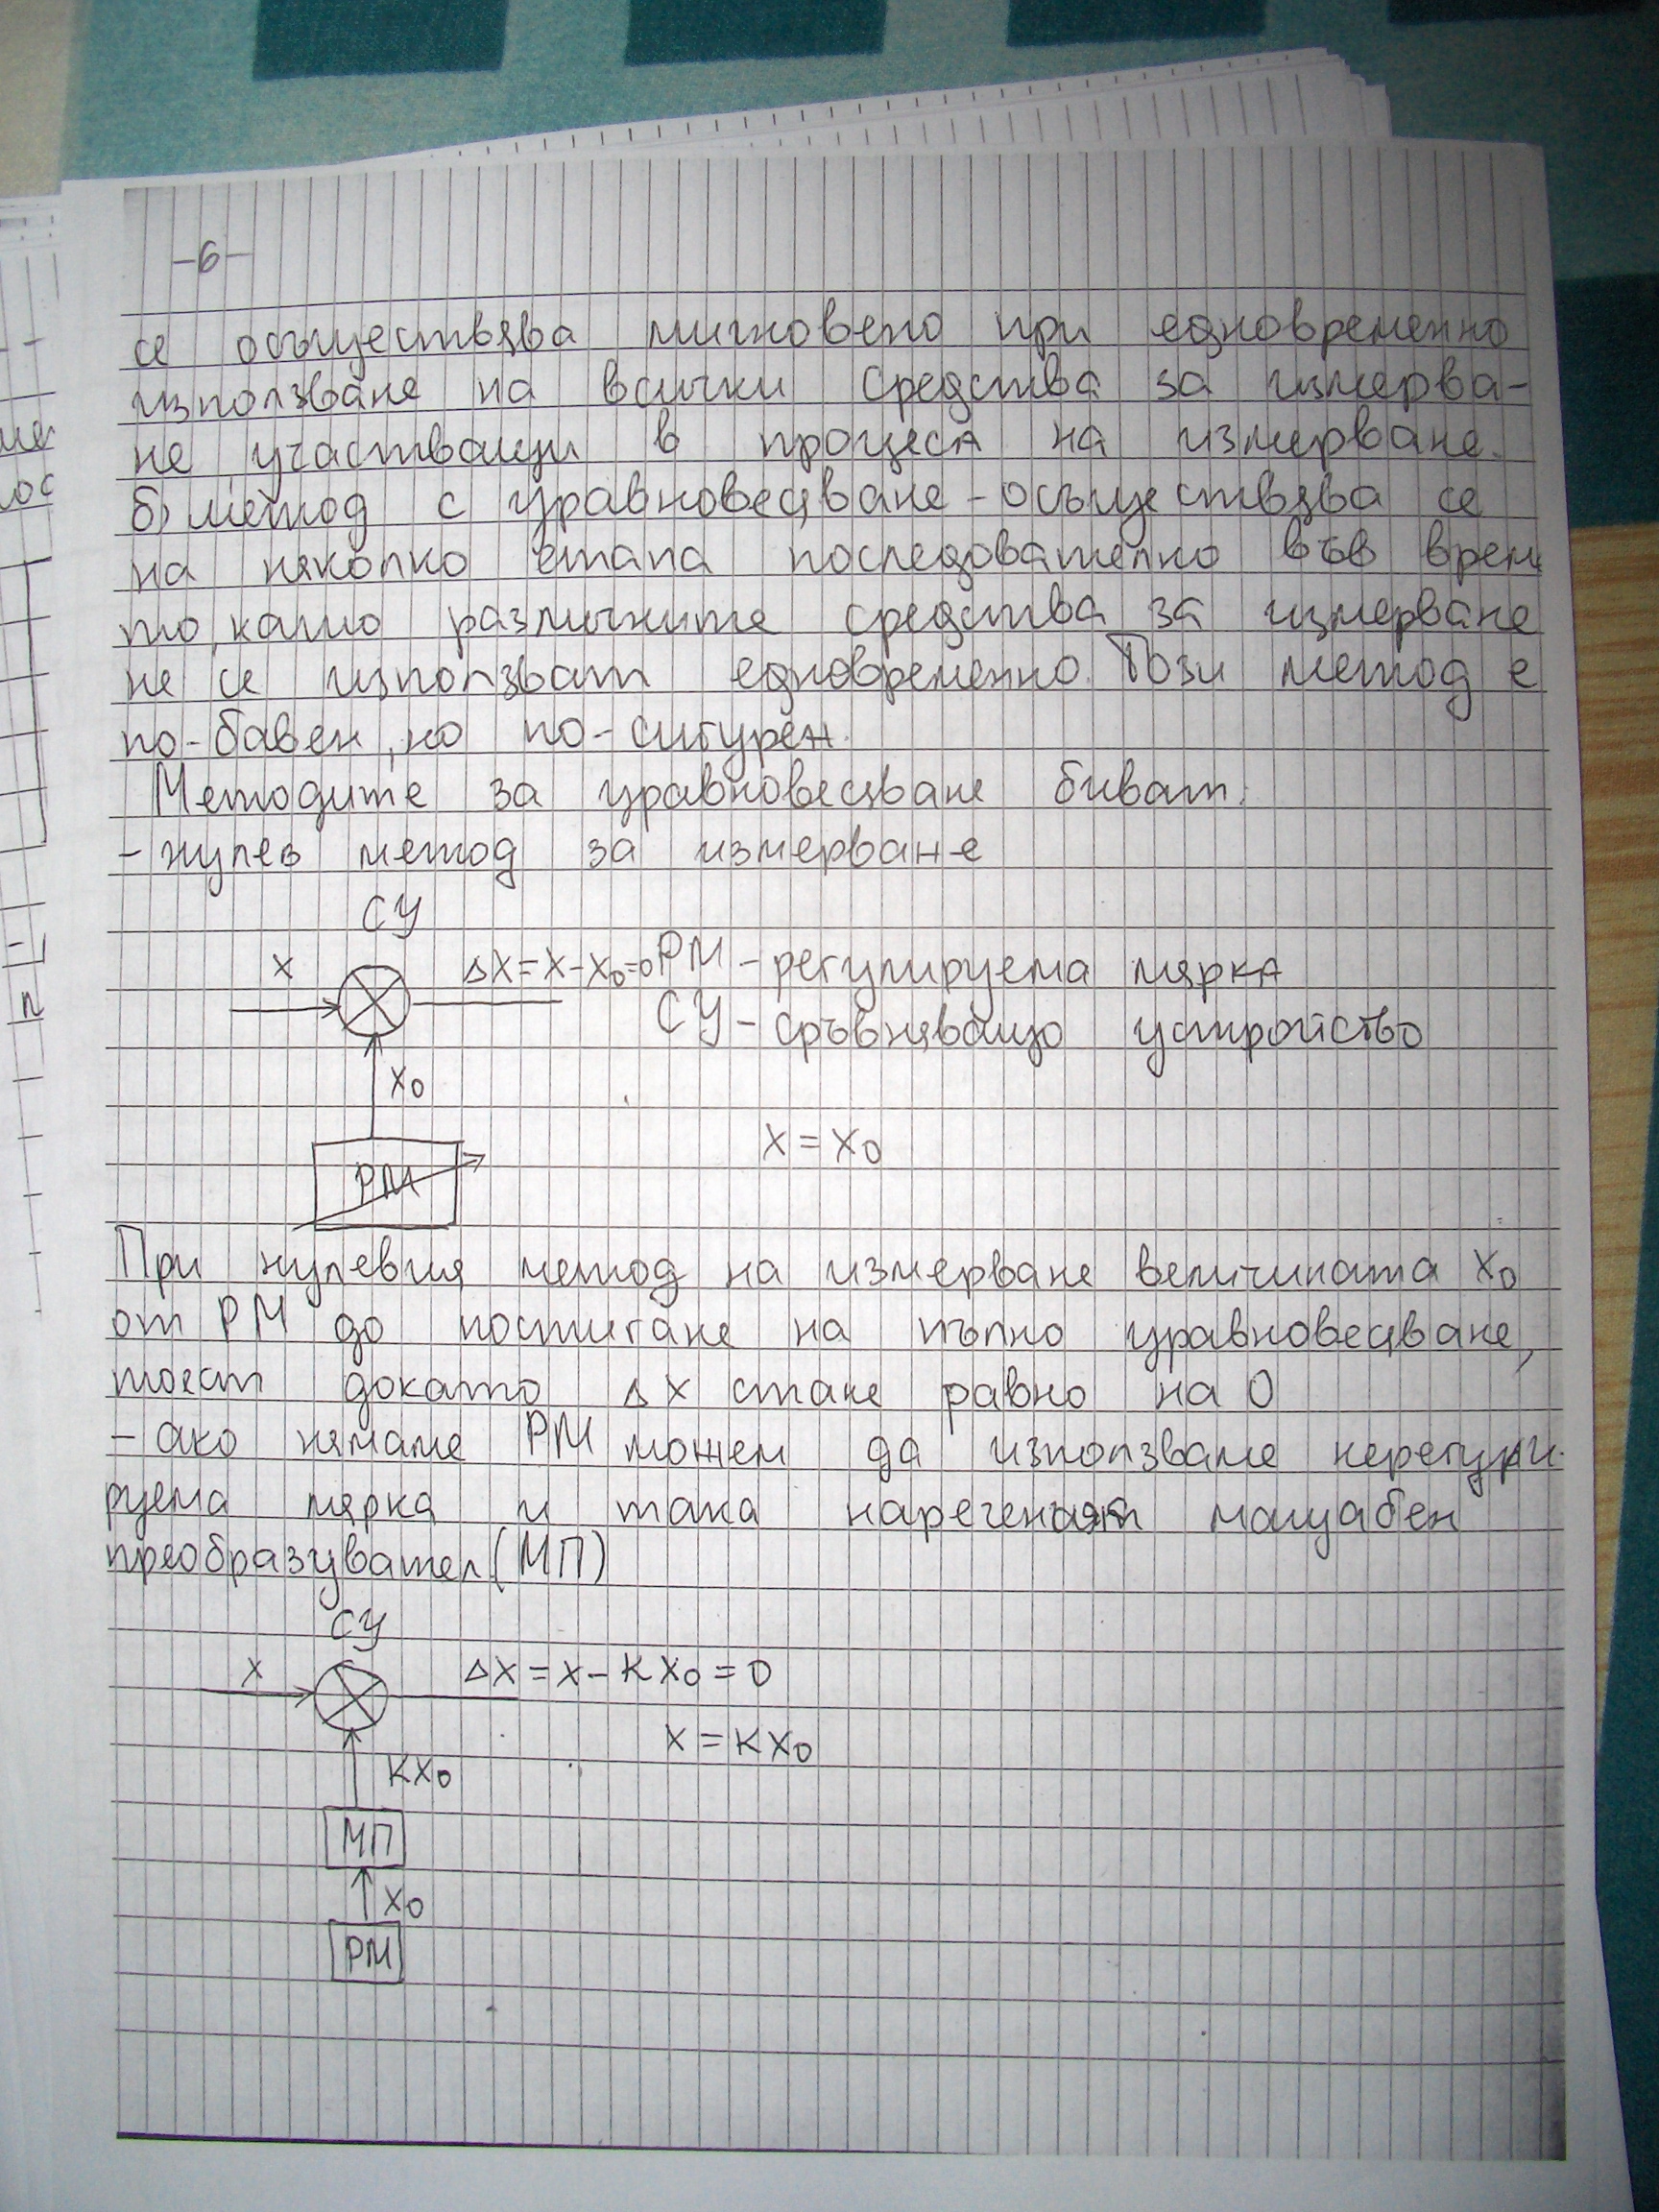 -6-
се осъществява мигновено при едновременно
използване на всички средства за измерва-
не участващи в процеса на измерване.
б) метод с уравновесяване - осъществява се
на няколко етапа последователно във време
то, като различните средства за измерване
не се използват едновременно. Този метод е
по-бавен, но по-сигурен.
Методите за уравновесяване биват:
- нулев метод за измерване
СУ
X
ΔX = X - X₀ = 0
РМ - регулируема мярка
СУ - сравняващо устройство
X₀
X = X₀
РМ
При нулевия метод на измерване величината X₀
от РМ до постигане на пълно уравновесяване,
тоест докато ΔX стане равно на 0
- ако нямаме РМ можем да използваме нерегули-
руема мярка и така наречения мащабен
преобразувател (МП)
СУ
X
ΔX = X - KX₀ = 0
X = KX₀
KX₀
МП
X₀
РМ